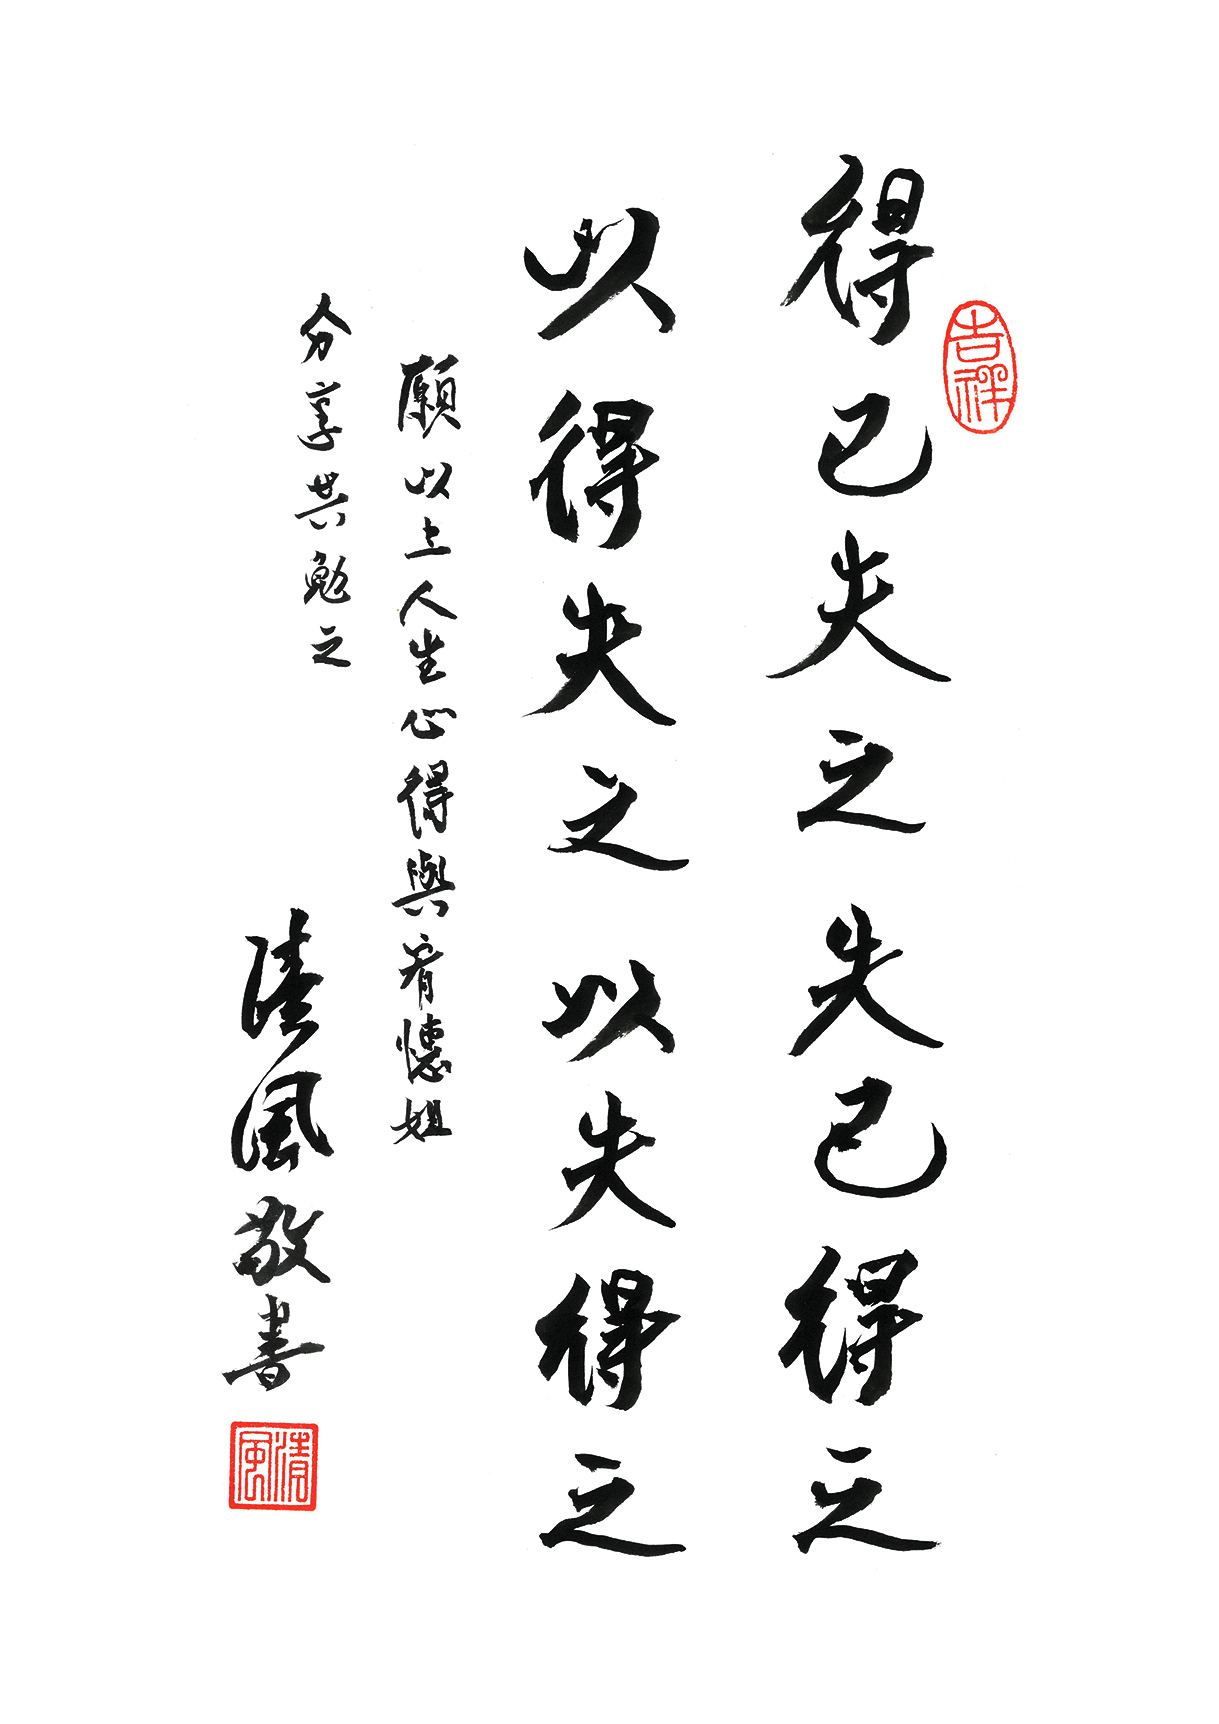 吉祥
得已失之失已得之
以得失之以失得之
願以上人生心得與宥憓姐
分享共勉之
陸風敬書
清風